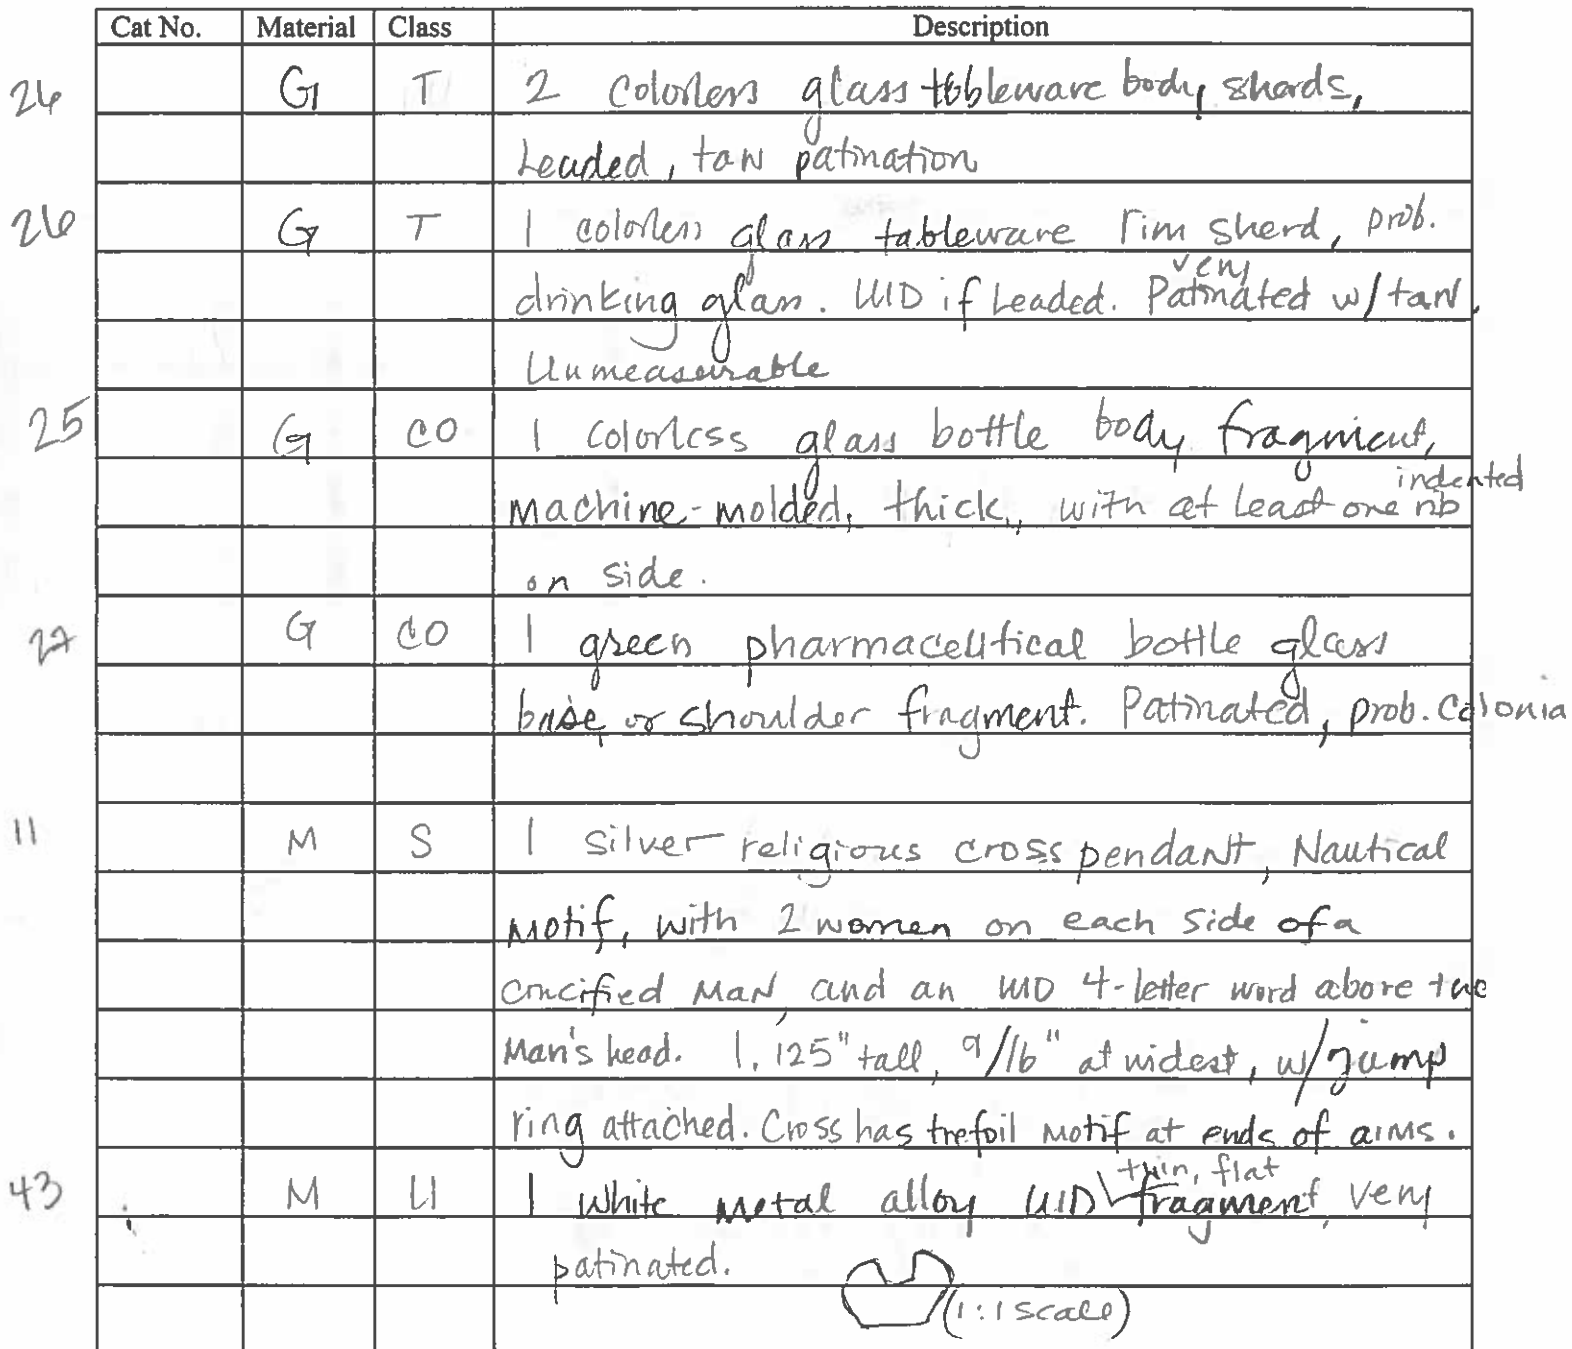 Cat No. Material Class Description
26 G T 2 colorless glass tableware body sherds,
Leaded, tan patination
26 G T 1 colorless glass tableware rim sherd, prob.
very
drinking glass. UID if Leaded. Patinated w/tan.
Unmeasurable
25 G CO 1 colorless glass bottle body fragment,
indented
machine-molded, thick, with at least one rib
on side.
27 G CO 1 green pharmaceutical bottle glass
base or shoulder fragment. Patinated, prob. Colonia
11 M S 1 silver religious cross pendant, Nautical
motif, with 2 women on each side of a
crucified man, and an UID 4-letter word above the
Man's head. 1.125" tall, 9/16" at widest, w/jump
ring attached. Cross has trefoil motif at ends of arms.
thin, flat
43 M U 1 White metal alloy UID fragment, very
patinated.
(1:1 scale)